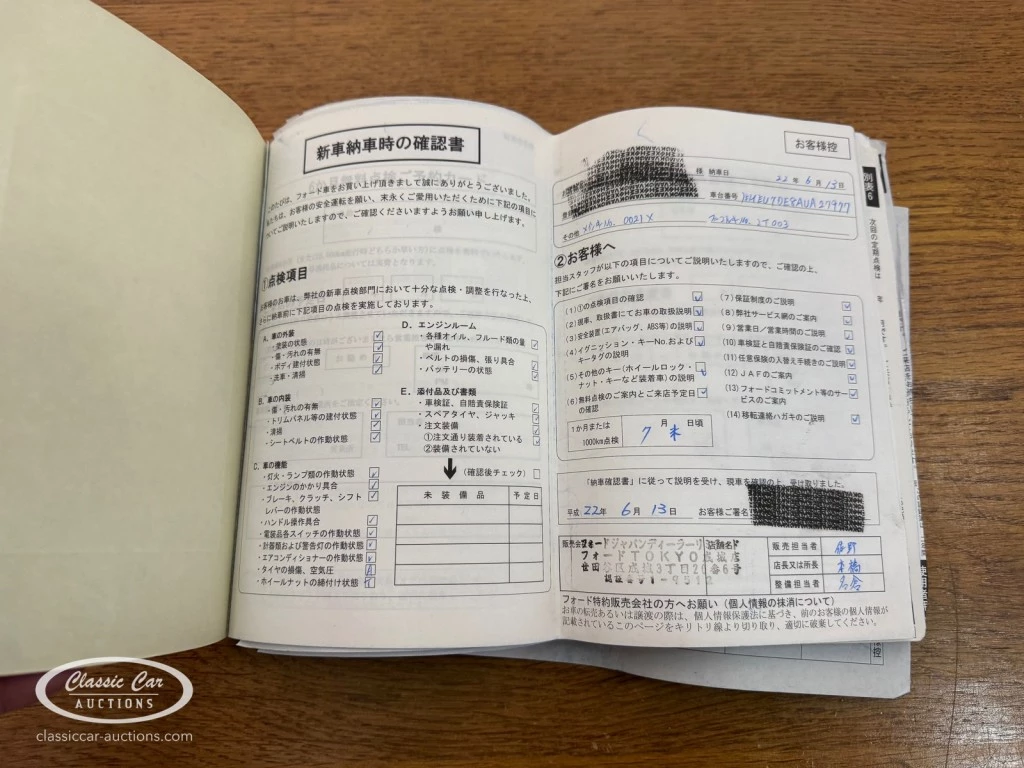 新車納車時の確認書
このたびは、フォード車をお買い上げ頂きまして誠にありがとうございました。
私たちは、お客様の安全運転を願い、末永くご愛用いただくために下記の項目に
ついてご説明いたしますので、ご確認くださいますようお願い申し上げます。
①点検項目
お客様のお車は、弊社の新車点検部門において十分な点検・調整を行なった上、
さらに納車前に下記項目の点検を実施しております。
A. 車の外装
・塗装の状態
・傷・汚れの有無
・ボディ建付状態
・洗車・清掃
B. 車の内装
・傷・汚れの有無
・トリムパネル等の建付状態
・清掃
・シートベルトの作動状態
C. 車の機能
・灯火・ランプ類の作動状態
・エンジンのかかり具合
・ブレーキ、クラッチ、シフト
レバーの作動状態
・ハンドル操作具合
・電装品各スイッチの作動状態
・計器類および警告灯の作動状態
・エアコンディショナーの作動状態
・タイヤの損傷、空気圧
・ホイールナットの締付け状態
D. エンジンルーム
・各種オイル、フルード類の量
や漏れ
・ベルトの損傷、張り具合
・バッテリーの状態
E. 添付品及び書類
・車検証、自賠責保険証
・スペアタイヤ、ジャッキ
・注文装備
①注文通り装着されている
②装備されていない
(確認後チェック)
未装備品 予定日
お客様控
様 納車日
22年 6月 13日
車台番号
その他 0021X
②お客様へ
担当スタッフが以下の項目についてご説明いたしますので、ご確認の上、
下記にご署名をお願いいたします。
(1)①の点検項目の確認
(2)現車、取扱書にてお車の取扱説明
(3)安全装置(エアバッグ、ABS等)の説明
(4)イグニッション・キーNo.および
キータグの説明
(5)その他のキー(ホイールロック・
ナット・キーなど装着車)の説明
(6)無料点検のご案内とご来店予定日
の確認
1か月または
1000km点検
7月 末日頃
(7)保証制度のご説明
(8)弊社サービス網のご案内
(9)営業日/営業時間のご説明
(10)車検証と自賠責保険証のご確認
(11)任意保険の入替え手続きのご説明
(12)JAFのご案内
(13)フォードコミットメント等のサー
ビスのご案内
(14)移転連絡ハガキのご説明
「納車確認書」に従って説明を受け、現車を確認の上、受け取りました。
平成 22年 6月 13日 お客様ご署名
販売会社 フォードジャパンディーラー 店舗名
フォードTOKYO成城店
世田谷区成城3丁目20番6号
販売担当者
店長又は所長 本橋
整備担当者 名倉
フォード特約販売会社の方へお願い(個人情報の抹消について)
お車の転売あるいは譲渡の際は、個人情報保護法に基づき、前のお客様の個人情報が
記載されているこのページをキリトリ線より切り取り、適切に破棄してください。
別表6
次回の定期点検は
Classic Car
AUCTIONS
classiccar-auctions.com